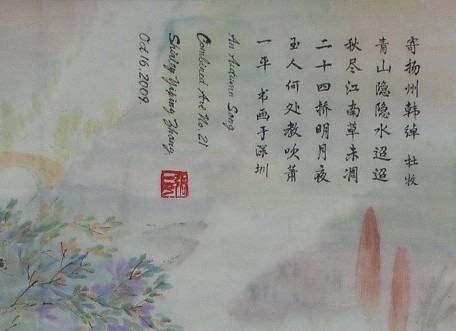 寄扬州韩绰 杜牧
青山隐隐水迢迢
秋尽江南草未凋
二十四桥明月夜
玉人何处教吹萧
一平 书画于深圳
An Autumn Song
Combined Art No. 21
Shirley Yiping Zhang
Oct 16, 2009